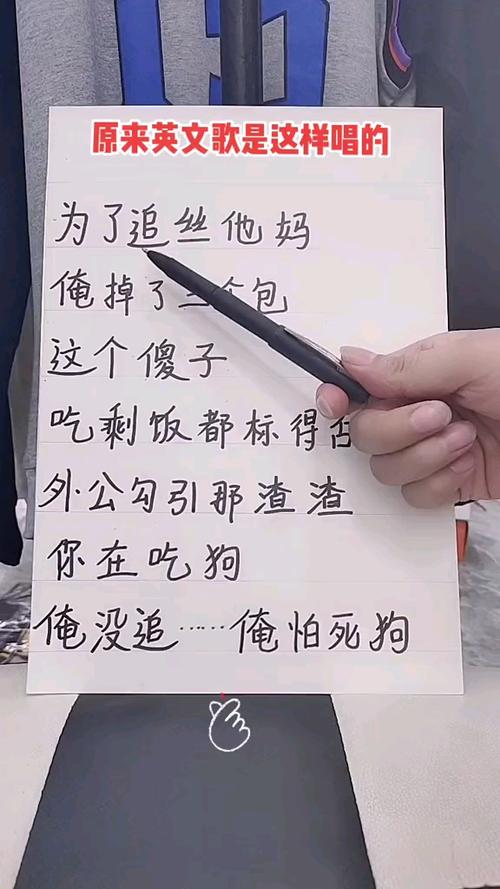 原来英文歌是这样唱的
为了追丝他妈
俺掉了三个包
这个傻子
吃剩饭都标得
外公勾引那渣渣
你在吃狗
俺没追……俺怕死狗